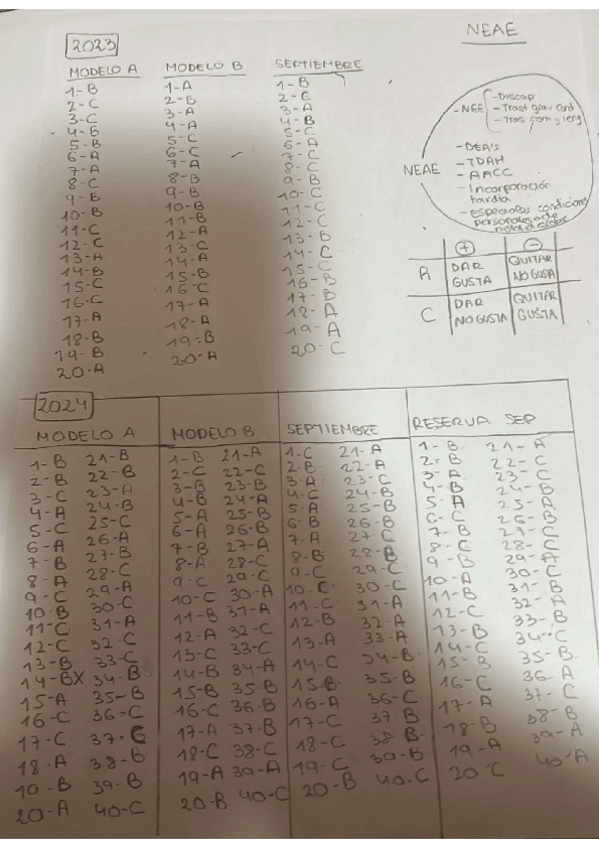 2023
MODELO A
1-B
2-C
3-C
4-B
5-B
6-A
7-A
8-C
9-B
10-B
11-C
12-C
13-A
14-B
15-C
16-C
17-A
18-B
19-B
20-A
MODELO B
1-A
2-B
3-A
4-A
5-C
6-C
7-A
8-B
9-B
10-B
11-B
12-A
13-C
14-A
15-B
16-C
17-A
18-A
19-B
20-A
SEPTIEMBRE
1-B
2-C
3-A
4-B
5-C
6-A
7-C
8-C
9-B
10-C
11-C
12-C
13-B
14-C
15-C
16-B
17-B
18-A
19-A
20-C
NEAE
NEAE
- NEE
- Discap
- Trast gav cord
- Tras com y leng
- DEA's
- TDAH
- AACC
- Incorporación
tardía
- especiales condicions
personales o de
+ -
R DAR GUSTA QUITAR NO GUSTA
C DAR NO GUSTA QUITAR GUSTA
2024
MODELO A
1-B 21-B
2-B 22-B
3-C 23-A
4-A 24-B
5-C 25-C
6-A 26-A
7-B 27-B
8-A 28-C
9-C 29-A
10-B 30-C
11-C 31-A
12-C 32-C
13-B 33-C
14-BX 34-B
15-A 35-B
16-C 36-C
17-C 37-C
18-A 38-B
19-B 39-B
20-A 40-C
MODELO B
1-B 21-A
2-C 22-C
3-B 23-B
4-B 24-A
5-A 25-B
6-A 26-B
7-B 27-A
8-A 28-C
9-C 29-C
10-C 30-A
11-B 31-A
12-A 32-C
13-C 33-C
14-B 34-A
15-B 35-B
16-C 36-B
17-A 37-B
18-C 38-C
19-A 39-A
20-B 40-C
SEPTIEMBRE
1-C 21-A
2-B 22-A
3-A 23-C
4-C 24-B
5-A 25-B
6-B 26-B
7-A 27-C
8-B 28-B
9-C 29-C
10-C 30-C
11-C 31-A
12-B 32-A
13-A 33-A
14-C 34-B
15-B 35-B
16-A 36-C
17-C 37-B
18-C 38-B
19-C 39-B
20-B 40-C
RESERVA SEP
1-B 21-A
2-B 22-C
3-A 23-C
4-B 24-B
5-A 25-A
6-C 26-B
7-B 27-C
8-C 28-C
9-B 29-A
10-A 30-C
11-B 31-B
12-C 32-A
13-B 33-B
14-C 34-C
15-B 35-B
16-C 36-A
17-A 37-C
18-B 38-B
19-A 39-A
20-C 40-A